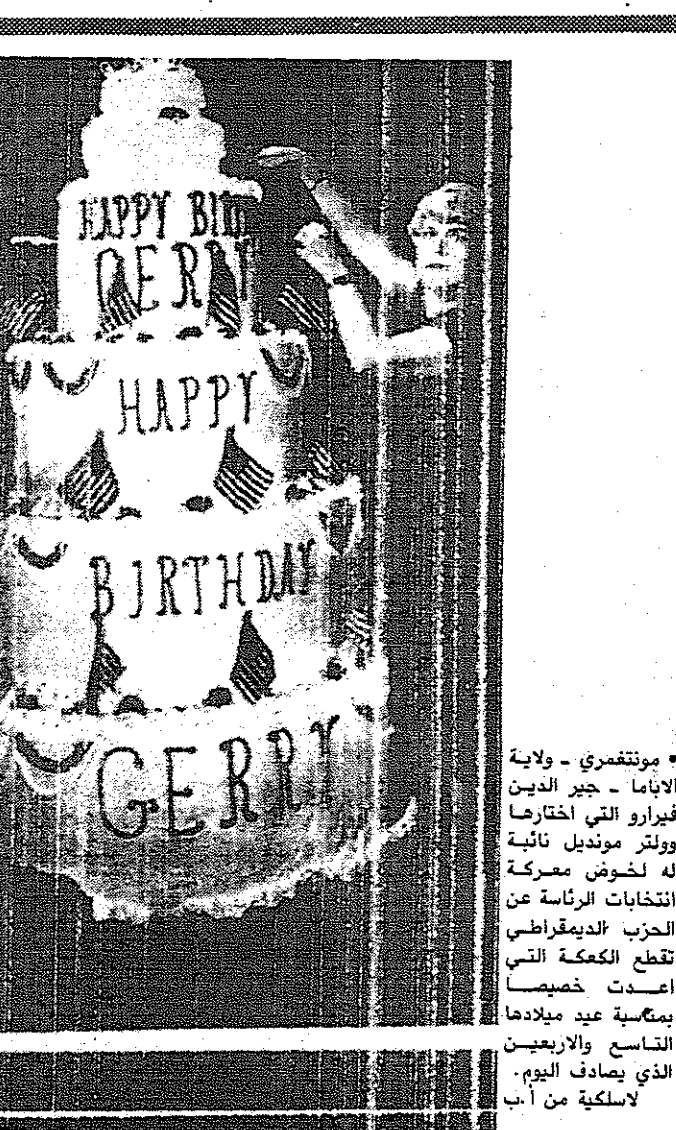 HAPPY BIR
GERRY
HAPPY
BIRTHDAY
GERRY
• مونتغمري - ولاية
الاباما - جير الدين
فيرارو التي اختارها
وولتر مونديل نائبة
له لخوض معركة
انتخابات الرئاسة عن
الحزب الديمقراطي
تقطع الكعكة التي
اعدت خصيصا
بمناسبة عيد ميلادها
التاسع والاربعين
الذي يصادف اليوم.
لاسلكية من أ.ب